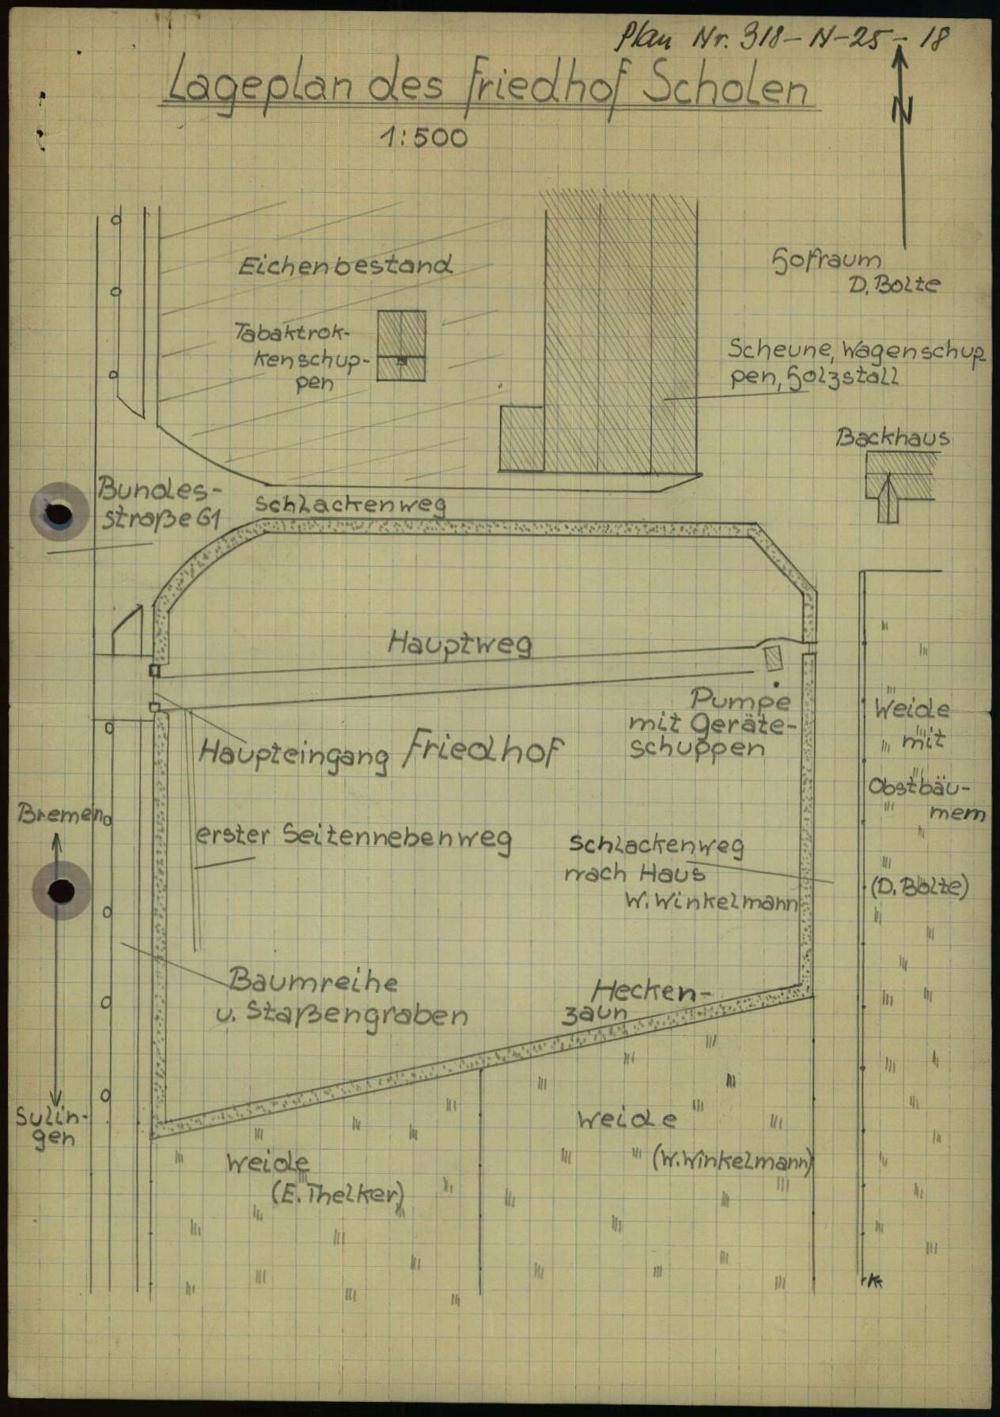 Plan Nr. 318-N-25-18
Lageplan des Friedhof Scholen
1:500
N
Eichenbestand
Hofraum
D. Bolte
Tabaktrok-
kenschup-
pen
Scheune, Wagenschup
pen, Holzstall
Backhaus
Bundes-
straße 61
Schlackenweg
Hauptweg
Pumpe
mit Geräte-
schuppen
Haupteingang
Friedhof
Weide
mit
Obstbäu-
mem
(D. Bolte)
Bremen
erster Seitennebenweg
Schlackenweg
nach Haus
W. Winkelmann
Baumreihe
u. Staßengraben
Hecken-
zaun
Sulin-
gen
Weide
(E. Thelker)
Weide
(W. Winkelmann)